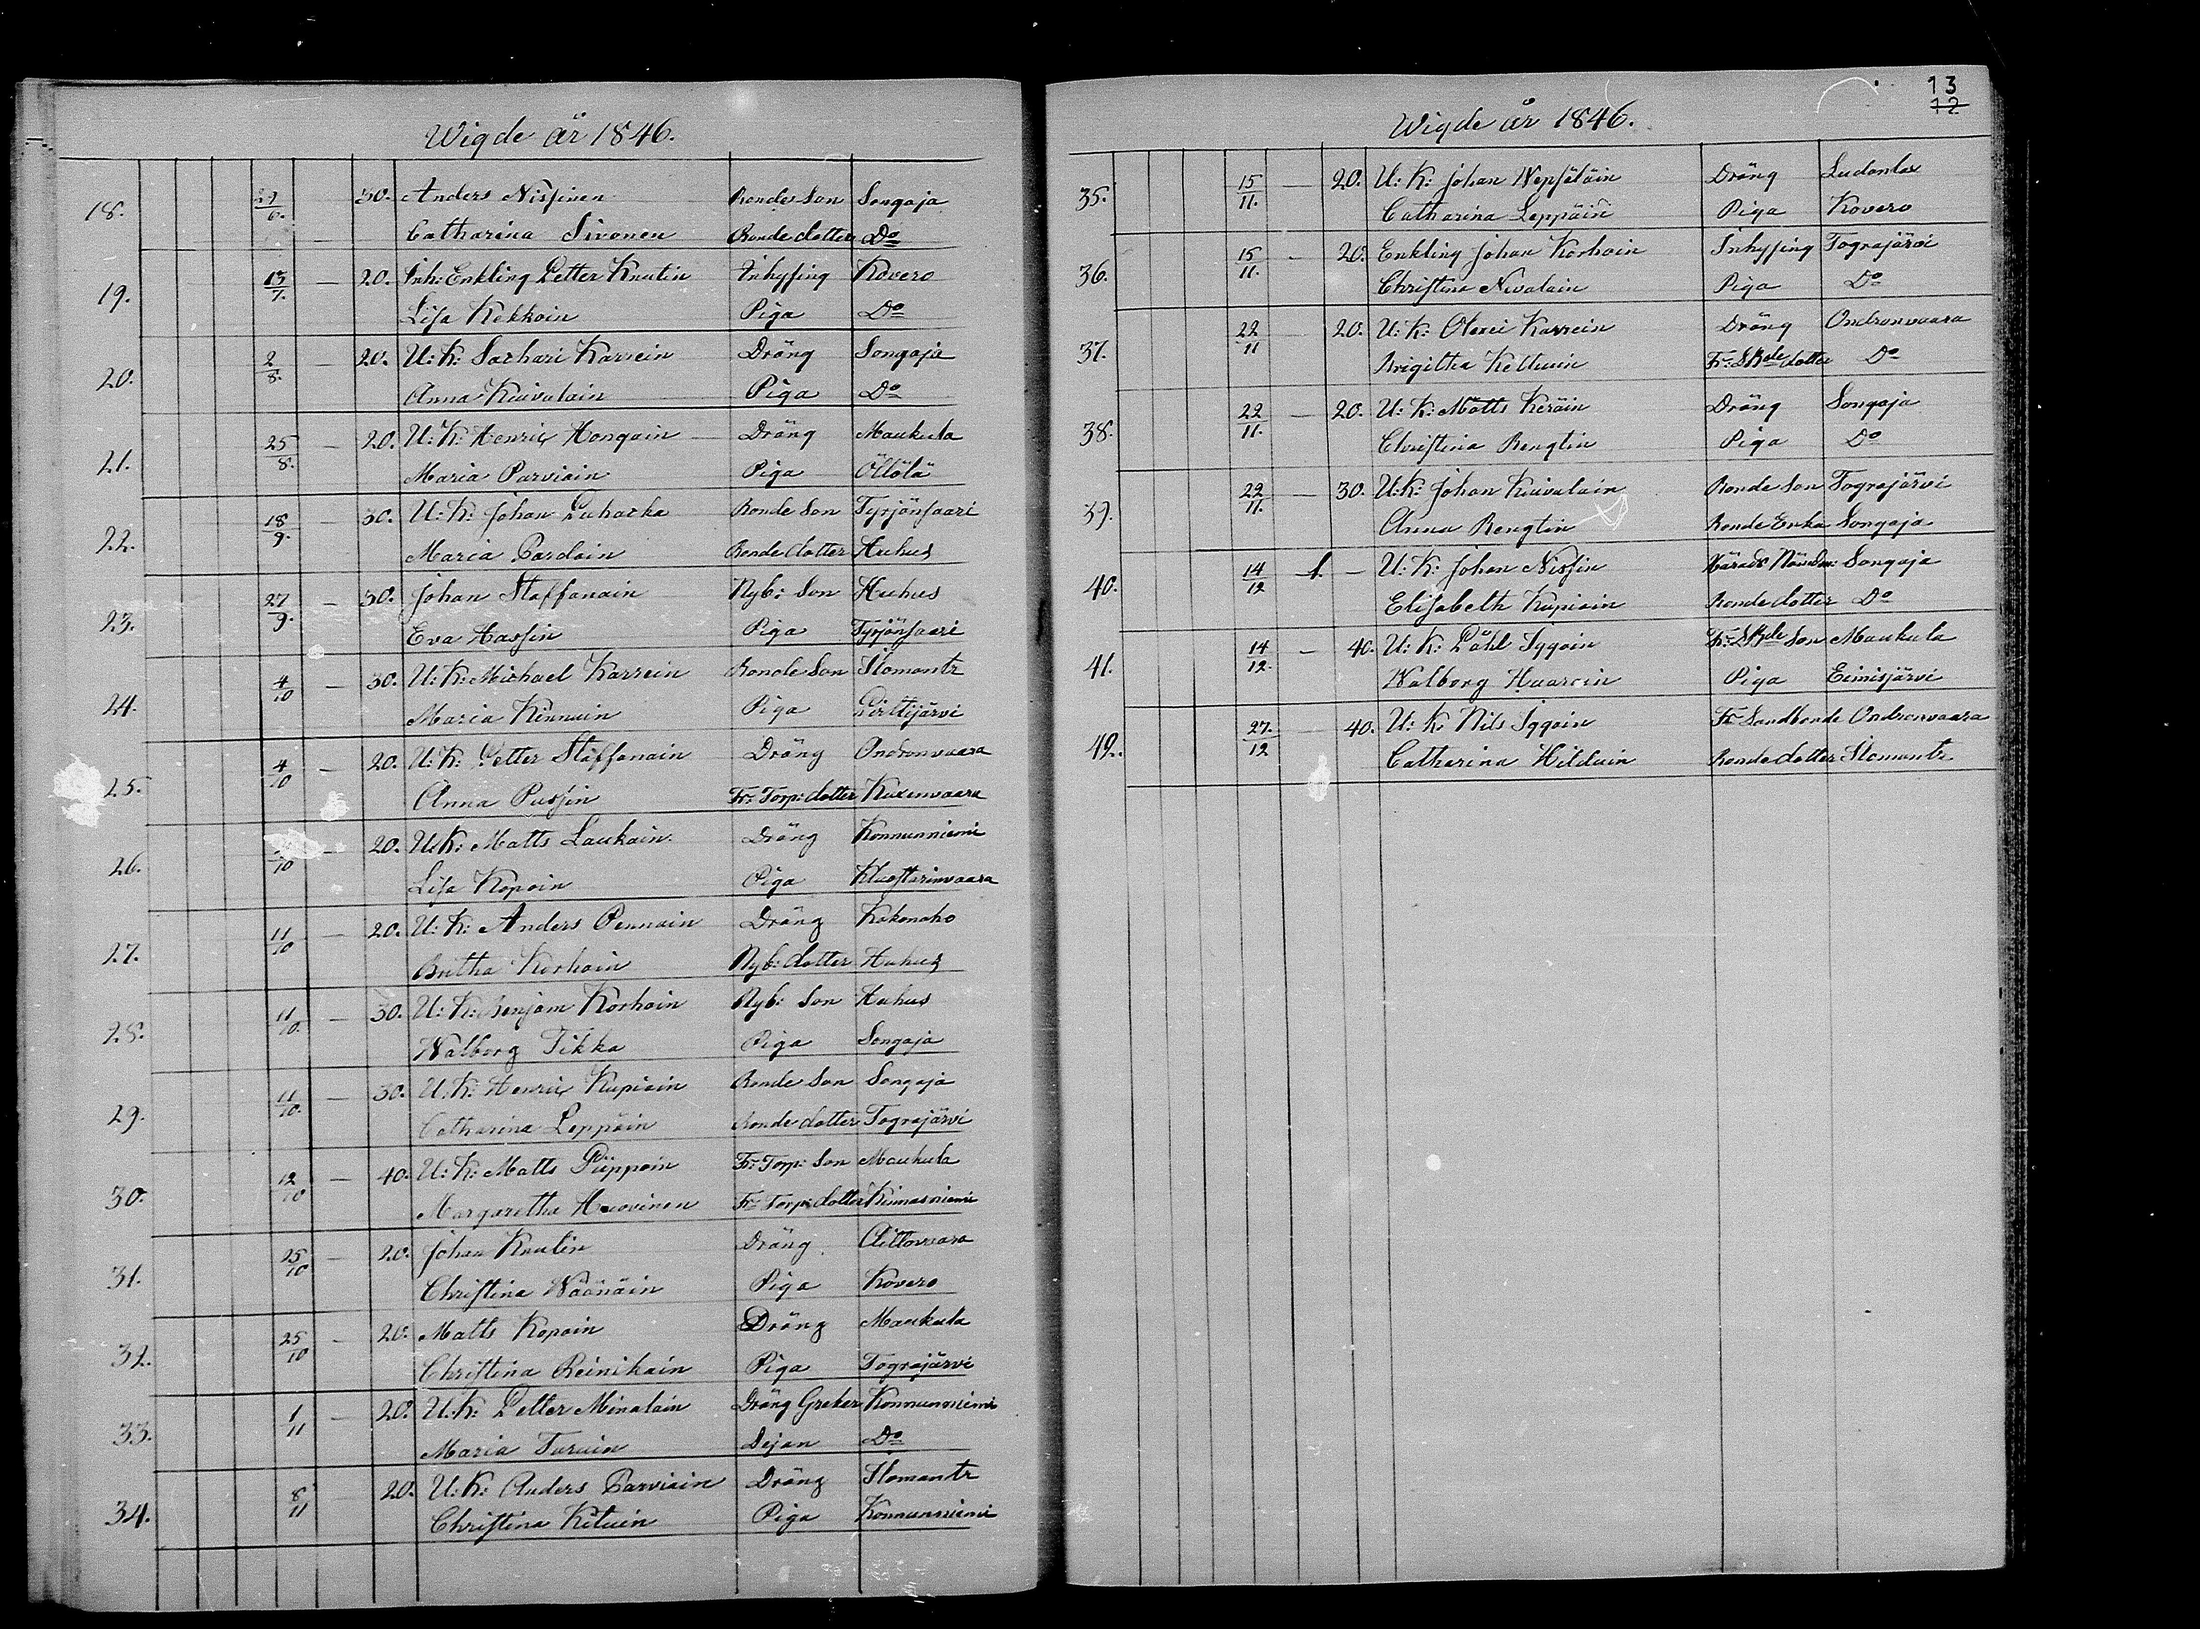 Wigde år 1846.
18. 27/6. 30. Anders Nissinen Bonde Son Songaja
Catharina Sivonen Bonde dotter Do
19. 13/7. — 20. Inh: Enkling Petter Knutin Inhysing Kovero
Lisa Kekkoin Piga Do
20. 2/8. — 20. U: K: Sachari Karrein Dräng Songaja
Anna Kiavalain Piga Do
21. 25/8. — 20. U: K: Henrix Hongain Dräng Maukula
Maria Parviain Piga Öllölä
22. 18/9. — 30. U: K: Johan Puharka Bonde Son Tyrjönsaari
Maria Pardain Bonde dotter Huhus
23. 27/9. — 30. Johan Staffanain Nyb: Son Huhus
Eva Hassin Piga Tyrjönsaari
24. 4/10 — 30. U: K: Michael Karrein Bonde Son Ilomantz
Maria Kinnuin Piga Pirttijärvi
25. 4/10 — 20. U: K: Petter Staffanain Dräng Ondronvaara
Anna Pussin Fr: Torp: dotter Kuxenvaara
26. /10 20. U: K: Matts Laukain Dräng Konnunniemi
Lisa Kopoin Piga Kluostarinvaara
27. 11/10 — 20. U: K: Anders Pennain Dräng Kokonaho
Britha Korhoin Nyb: dotter Huhus
28. 11/10. — 30. U: K: Benjam Korhoin Nyb: Son Huhus
Walborg Tikka Piga Songaja
29. 11/10. — 30. U: K: Henrix Kupiain Bonde Son Songaja
Catharina Leppäin Bonde dotter Tograjärvi
30. 12/10 — 40. U: K: Matts Piippoin Fr: Torp: Son Maukula
Margaretha Huovinen Fr: Torp: dotter Kinnasniemi
31. 25/10 — 20. Johan Knutin Dräng Aittovaara
Christina Wäänäin Piga Kovero
32. 25/10 — 20. Matts Kopoin Dräng Maukula
Christina Reinikain Piga Tograjärvi
33. 1/11 — 20. U: K: Petter Minalain Dräng Greker Konnunniemi
Maria Turuin Dejan Do
34. 8/11 — 20. U: K: Anders Parviain Dräng Ilomantz
Christina Kituin Piga Konnunniemi
13
12
Wigde år 1846.
35. 15/11. — 20. U: K: Johan Wepsäläin Dräng Ludonlax
Catharina Leppäin Piga Kovero
36. 15/11. — 20. Enkling Johan Korhoin Inhysing Tograjärvi
Christina Nivalain Piga Do
37. 22/11 — 20. U: K: Olexei Karrein Dräng Ondronvaara
Brigitha Keltuin Fr: SKde dotter Do
38. 22/11. — 20. U: K: Matts Keräin Dräng Songaja
Christina Bengtin Piga Do
39. 22/11. — 30. U: K: Johan Kiavalain Bonde Son Tograjärvi
Anna Bengtin Bonde Enka Songaja
40. 14/12 1. — U: K: Johan Nissin Härads Nämdm: Songaja
Elisabeth Kupiain Bonde dotter Do
41. 14/12. — 40. U: K: Påhl Iggoin Fr: SKde Son Maukula
Walborg Huaroin Piga Eimisjärvi
42. 27./12 40. U: K: Nils Iggoin Fr: Sandbonde Ondronvaara
Catharina Hilduin Bonde dotter Ilomantz